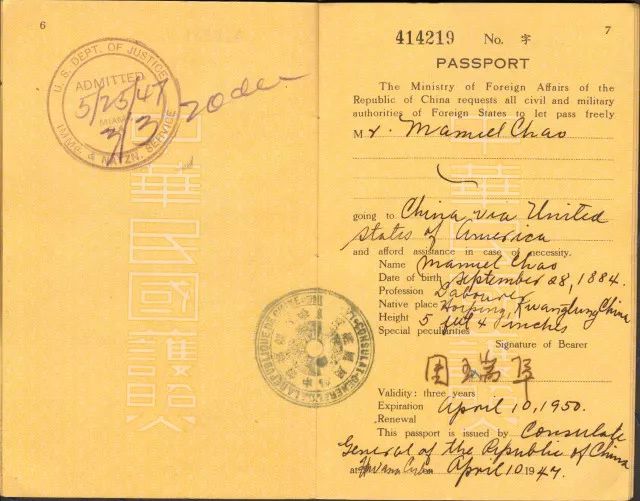 6
U. S. DEPT. OF JUSTICE
ADMITTED
5/25/47
MIAMI
3/3
20 de
IMMG. & NATZN. SERVICE
中華民國護照
7
414219 No. 字
PASSPORT
The Ministry of Foreign Affairs of the
Republic of China requests all civil and military
authorities of Foreign States to let pass freely
Mr. Mamiel Chao
going to China via United
States of America
and afford assistance in case of necessity.
Name Mamiel Chao
Date of birth September 28, 1884.
Profession Laboure
Native place Hoiping, Kwangtung, China
Height 5 feet 4 inches
Special peculiarities
Signature of Bearer
Validity: three years
Expiration April 10, 1950.
Renewal
This passport is issued by Consulate
General of the Republic of China
at Havana Cuba April 10 1947.
中華民國護照